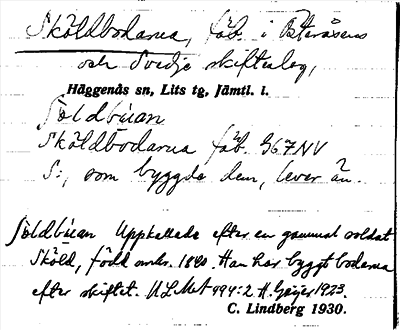 Sköldbodarna, fäb. i Österåsens
och Svedje skifteslag,
Häggenås sn, Lits tg, Jämtl. l.
Sköldbodarna fäb. 967NV
S:, som byggde dem, lever än.
Uppkallade efter en gammal soldat
Sköld, född omkr. 1840. Han har byggt bodarna
efter skiftet. ULMA 494:2 H. Geijer 1923.
C. Lindberg 1930.